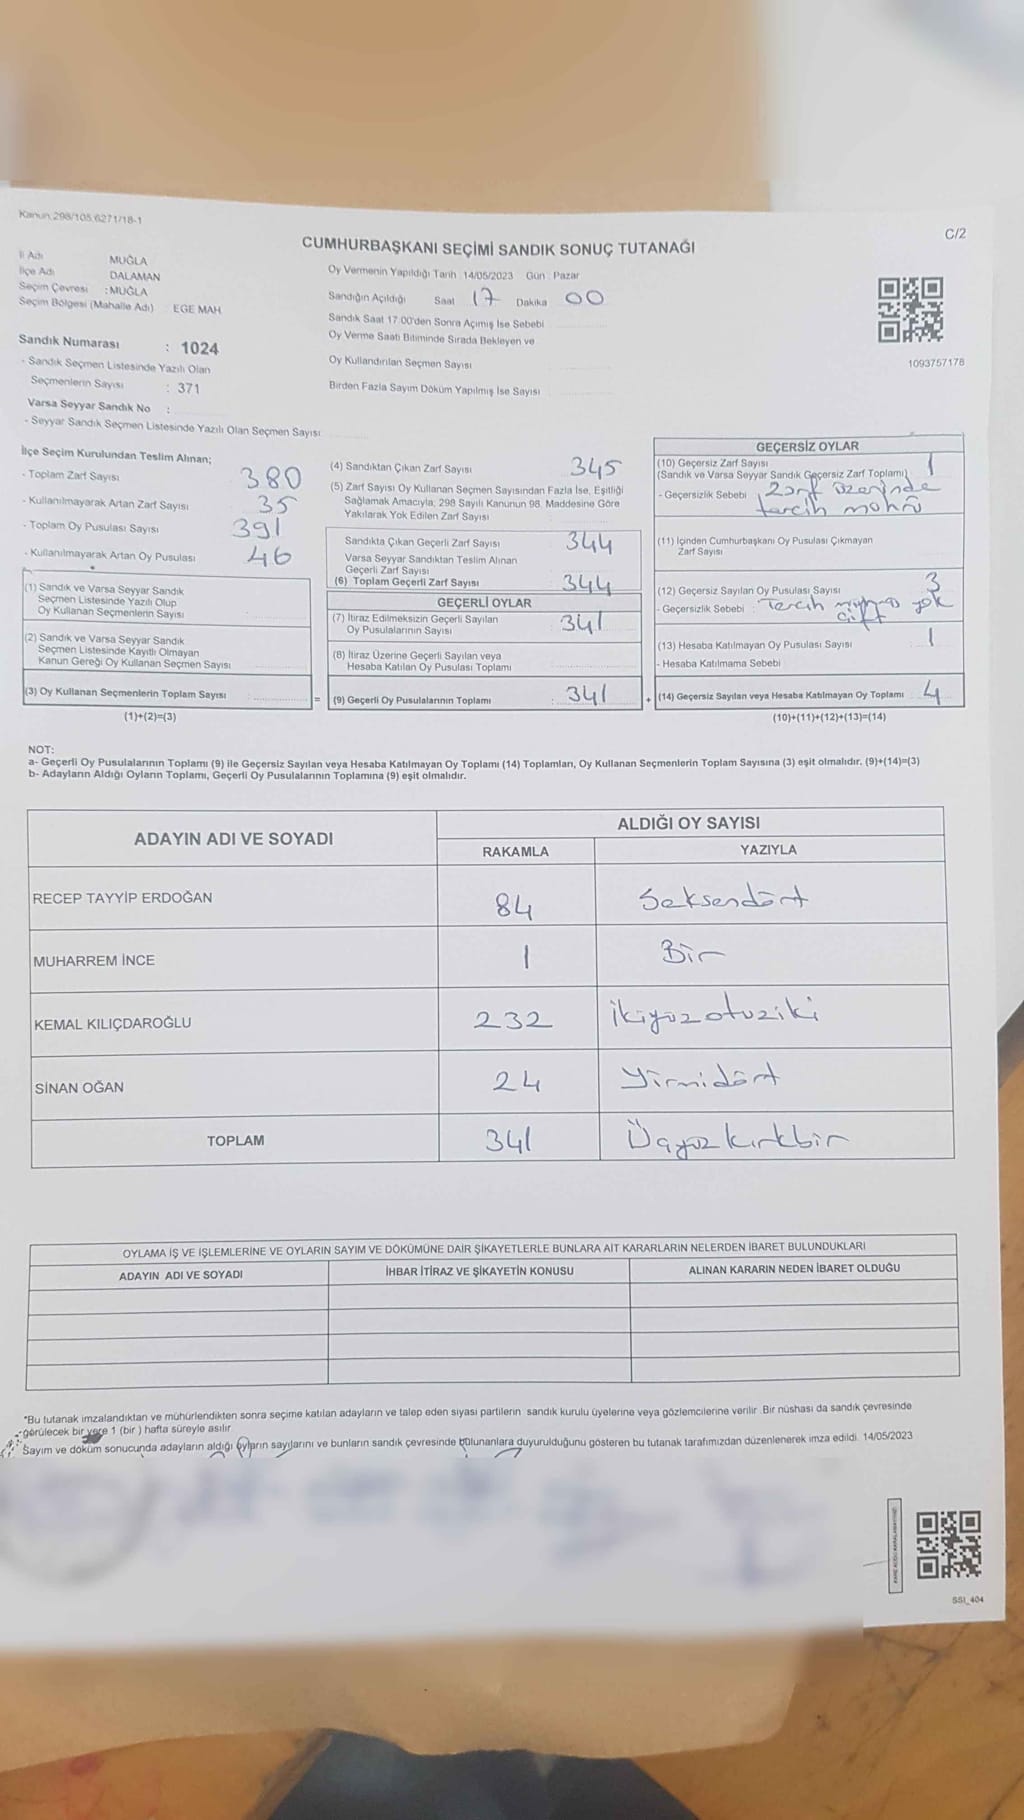 Kanun 298/105 6271/18-1
C/2
CUMHURBAŞKANI SEÇİMİ SANDIK SONUÇ TUTANAĞI
İl Adı MUĞLA
İlçe Adı DALAMAN
Seçim Çevresi : MUĞLA
Seçim Bölgesi (Mahalle Adı) EGE MAH.
Sandık Numarası : 1024
- Sandık Seçmen Listesinde Yazılı Olan
Seçmenlerin Sayısı : 371
Varsa Seyyar Sandık No :
- Seyyar Sandık Seçmen Listesinde Yazılı Olan Seçmen Sayısı
Oy Vermenin Yapıldığı Tarih 14/05/2023 Gün : Pazar
Sandığın Açıldığı Saat 17 Dakika 00
Sandık Saat 17:00'den Sonra Açımış İse Sebebi
Oy Verme Saati Bitiminde Sırada Bekleyen ve
Oy Kullandırılan Seçmen Sayısı
Birden Fazla Sayım Döküm Yapılmış İse Sayısı
1093757178
İlçe Seçim Kurulundan Teslim Alınan;
- Toplam Zarf Sayısı 380
- Kullanılmayarak Artan Zarf Sayısı 35
- Toplam Oy Pusulası Sayısı 391
- Kullanılmayarak Artan Oy Pusulası 46
(1) Sandık ve Varsa Seyyar Sandık
Seçmen Listesinde Yazılı Olup
Oy Kullanan Seçmenlerin Sayısı
(2) Sandık ve Varsa Seyyar Sandık
Seçmen Listesinde Kayıtlı Olmayan
Kanun Gereği Oy Kullanan Seçmen Sayısı
(3) Oy Kullanan Seçmenlerin Toplam Sayısı =
(1)+(2)=(3)
(4) Sandıktan Çıkan Zarf Sayısı 345
(5) Zarf Sayısı Oy Kullanan Seçmen Sayısından Fazla İse, Eşitliği
Sağlamak Amacıyla, 298 Sayılı Kanunun 98. Maddesine Göre
Yakılarak Yok Edilen Zarf Sayısı
Sandıkta Çıkan Geçerli Zarf Sayısı 344
Varsa Seyyar Sandıktan Teslim Alınan
Geçerli Zarf Sayısı
(6) Toplam Geçerli Zarf Sayısı 344
GEÇERLİ OYLAR
(7) İtiraz Edilmeksizin Geçerli Sayılan
Oy Pusulalarının Sayısı 341
(8) İtiraz Üzerine Geçerli Sayılan veya
Hesaba Katılan Oy Pusulası Toplamı
(9) Geçerli Oy Pusulalarının Toplamı 341 +
GEÇERSİZ OYLAR
(10) Geçersiz Zarf Sayısı 1
(Sandık ve Varsa Seyyar Sandık Geçersiz Zarf Toplamı)
- Geçersizlik Sebebi Zarf üzerinde
tercih mührü
(11) İçinden Cumhurbaşkanı Oy Pusulası Çıkmayan
Zarf Sayısı
(12) Geçersiz Sayılan Oy Pusulası Sayısı 3
- Geçersizlik Sebebi : Tercih yok
çift
(13) Hesaba Katılmayan Oy Pusulası Sayısı 1
- Hesaba Katılmama Sebebi
(14) Geçersiz Sayılan veya Hesaba Katılmayan Oy Toplamı 4
(10)+(11)+(12)+(13)=(14)
NOT:
a- Geçerli Oy Pusulalarının Toplamı (9) ile Geçersiz Sayılan veya Hesaba Katılmayan Oy Toplamı (14) Toplamları, Oy Kullanan Seçmenlerin Toplam Sayısına (3) eşit olmalıdır. (9)+(14)=(3)
b- Adayların Aldığı Oyların Toplamı, Geçerli Oy Pusulalarının Toplamına (9) eşit olmalıdır.
ADAYIN ADI VE SOYADI
ALDIĞI OY SAYISI
RAKAMLA YAZIYLA
RECEP TAYYİP ERDOĞAN 84 Seksendört
MUHARREM İNCE 1 Bir
KEMAL KILIÇDAROĞLU 232 İkiyüzotuziki
SİNAN OĞAN 24 Yirmidört
TOPLAM 341 Üçyüzkırkbir
OYLAMA İŞ VE İŞLEMLERİNE VE OYLARIN SAYIM VE DÖKÜMÜNE DAİR ŞİKAYETLERLE BUNLARA AİT KARARLARIN NELERDEN İBARET BULUNDUKLARI
ADAYIN ADI VE SOYADI İHBAR İTİRAZ VE ŞİKAYETİN KONUSU ALINAN KARARIN NEDEN İBARET OLDUĞU
*Bu tutanak imzalandıktan ve mühürlendikten sonra seçime katılan adayların ve talep eden siyasi partilerin sandık kurulu üyelerine veya gözlemcilerine verilir. Bir nüshası da sandık çevresinde
görülecek bir yere 1 (bir) hafta süreyle asılır
Sayım ve döküm sonucunda adayların aldığı oyların sayılarını ve bunların sandık çevresinde bulunanlara duyurulduğunu gösteren bu tutanak tarafımızdan düzenlenerek imza edildi. 14/05/2023
SSI_404